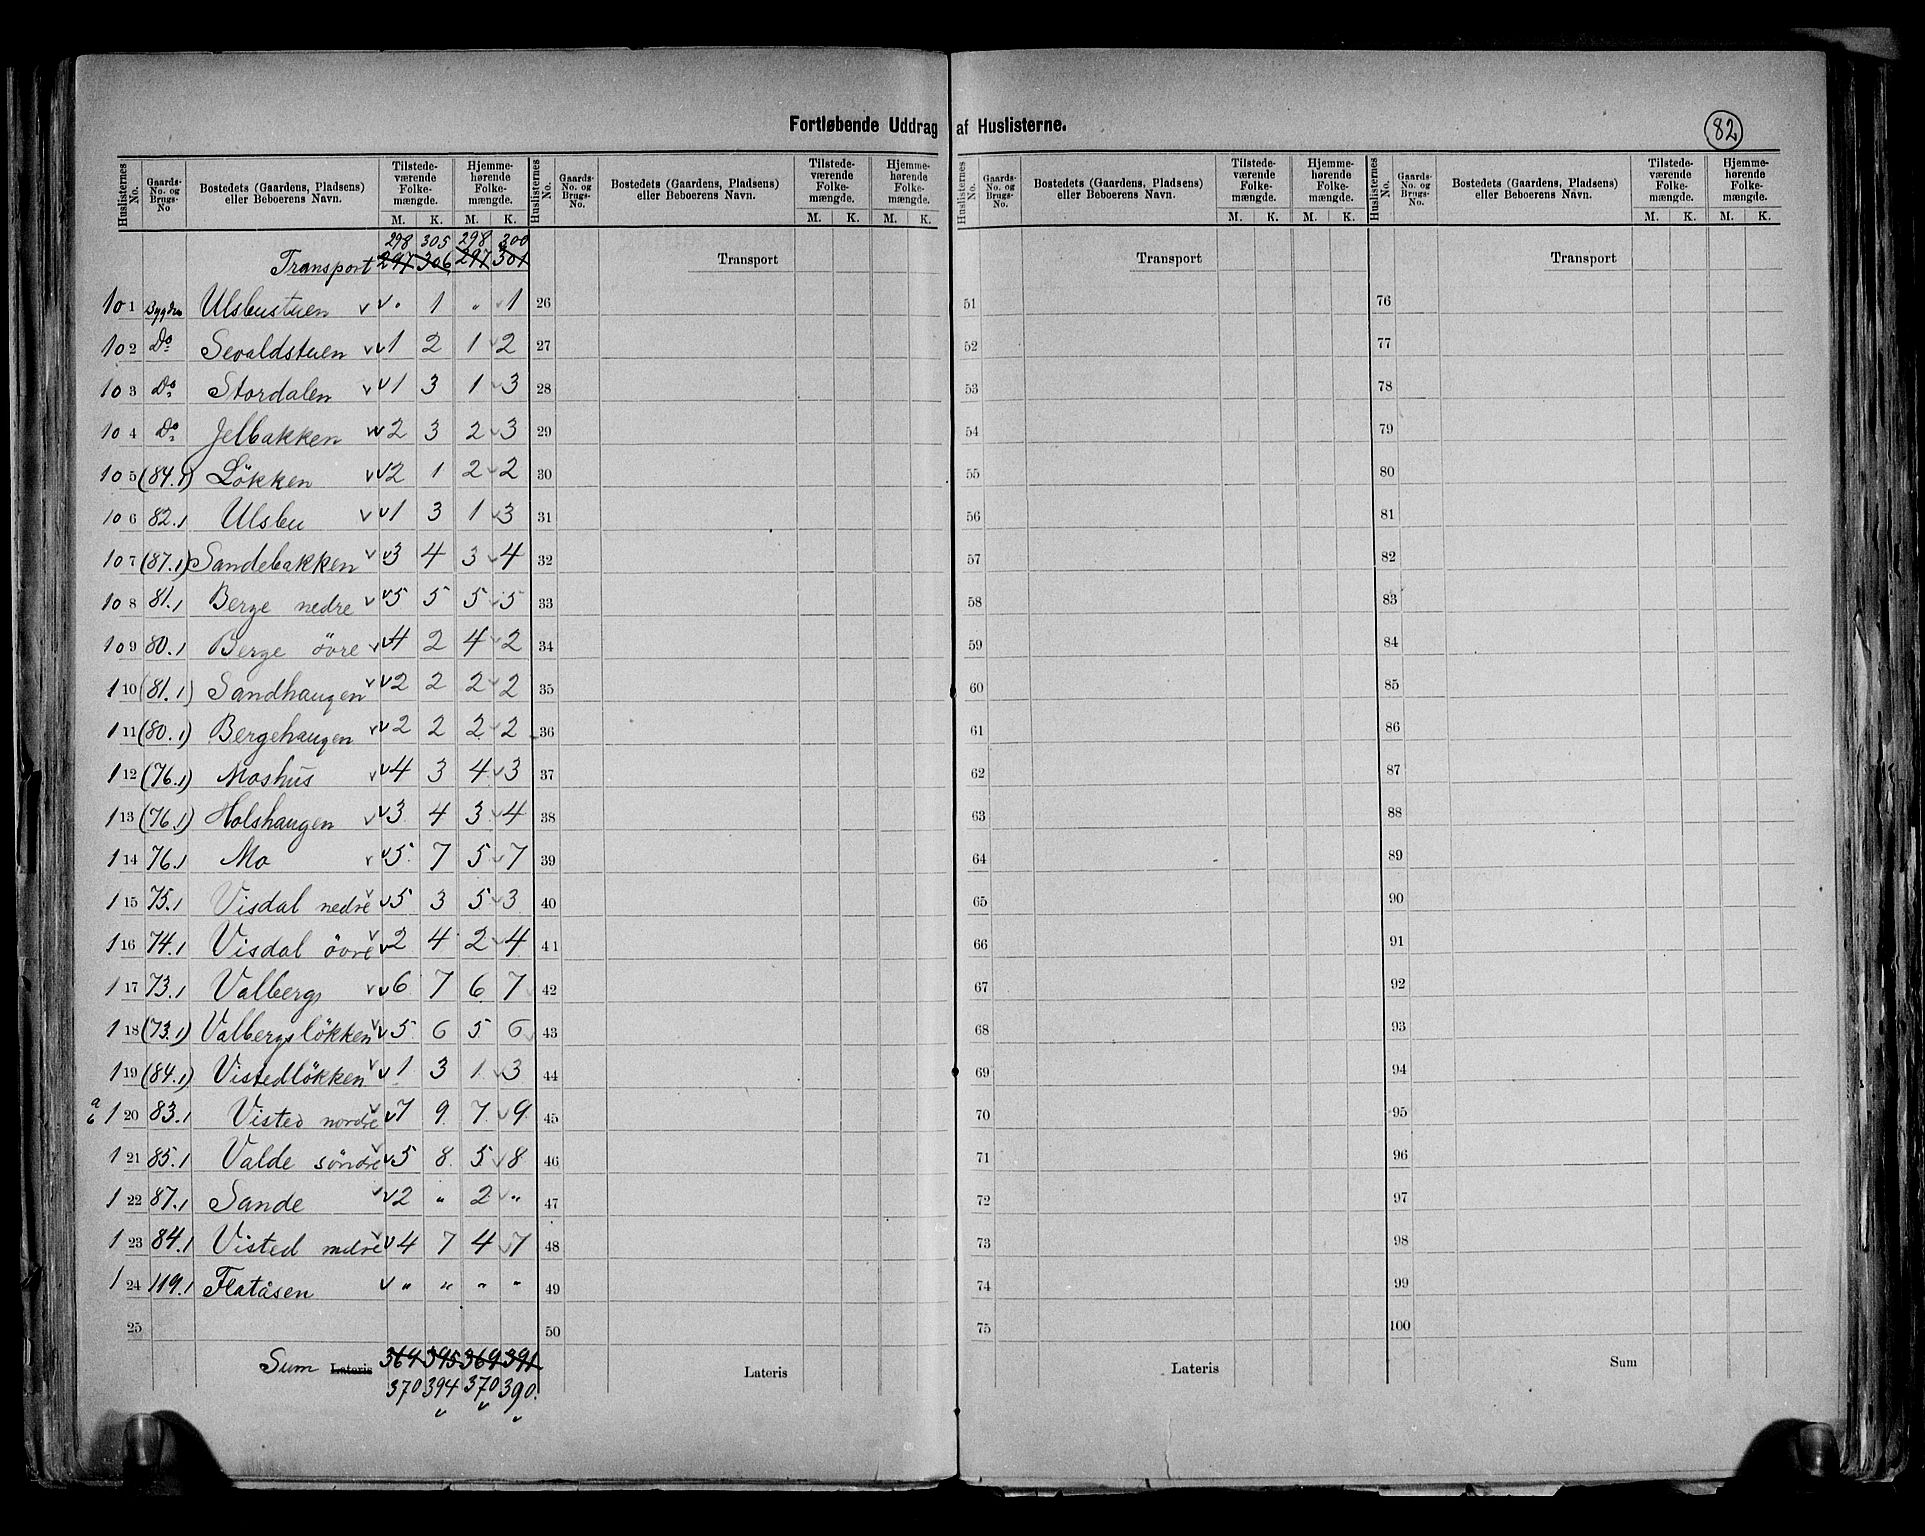 Fortløbende Uddrag af Huslisterne.
82
Huslisternes No. | Gaards-No. og Brugs-No | Bostedets (Gaardens, Pladsens) eller Beboerens Navn. | Tilstede-værende Folke-mængde. M. K. | Hjemme-hørende Folke-mængde. M. K.
Huslisternes No. | Gaards-No. og Brugs-No. | Bostedets (Gaardens, Pladsens) eller Beboerens Navn. | Tilstede-værende Folke-mængde. M. K. | Hjemme-hørende Folke-mængde. M. K.
Huslisternes No. | Gaards-No. og Brugs-No. | Bostedets (Gaardens, Pladsens) eller Beboerens Navn. | Tilstede-værende Folke-mængde. M. K. | Hjemme-hørende Folke-mængde. M. K.
Huslisternes No. | Gaards-No. og Brugs-No. | Bostedets (Gaardens, Pladsens) eller Beboerens Navn. | Tilstede-værende Folke-mængde. M. K. | Hjemme-hørende Folke-mængde. M. K.
298 305 298 300
Transport 297 306 297 301 Transport Transport Transport
101 Bygdm Ulsbustuen v v " 1 " v 1 26 51 76
102 Do Sevaldstuen v v 1 2 1 v 2 27 52 77
103 Do Stordalen v v 1 3 1 v 3 28 53 78
104 Do Jelbakken v v 2 3 2 v 3 29 54 79
105 (84.1) Lökken v v 2 1 2 v 2 30 55 80
106 82.1 Ulsbu v v 1 3 1 v 3 31 56 81
107 (87.1) Sandebakken v v 3 4 3 v 4 32 57 82
108 81.1 Berge nedre v v 5 5 5 v 5 33 58 83
109 80.1 Berge övre v v 4 2 4 v 2 34 59 84
110 (81.1) Sandhaugen v v 2 2 2 v 2 35 60 85
111 (80.1) Bergehaugen v v 2 2 2 v 2 36 61 86
112 (76.1) Moshus v v 4 3 4 v 3 37 62 87
113 (76.1) Holshaugen v v 3 4 3 v 4 38 63 88
114 76.1 Mo v v 5 7 5 v 7 39 64 89
115 75.1 Visdal nedre v v 5 3 5 v 3 40 65 90
116 74.1 Visdal övre v v 2 4 2 v 4 41 66 91
117 73.1 Valberg v v 6 7 6 7 v 42 67 92
118 (73.1) Valbergslökken v v 5 6 5 6 v 43 68 93
119 (84.1) Vistedlökken v v 1 3 1 v 3 44 69 94
a b 120 83.1 Visted nordre v v 7 9 7 v 9 45 70 95
121 85.1 Valde söndre v v 5 8 5 v 8 46 71 96
122 87.1 Sande v v 2 " 2 v " 47 72 97
123 84.1 Visted nedre v v 4 7 4 v 7 48 73 98
124 119.1 Flatåsen v " " " " 49 74 99
25 50 75 100
Sum Lateris 369 395 369 391 Lateris Lateris Sum
370 394 370 390.
v v v